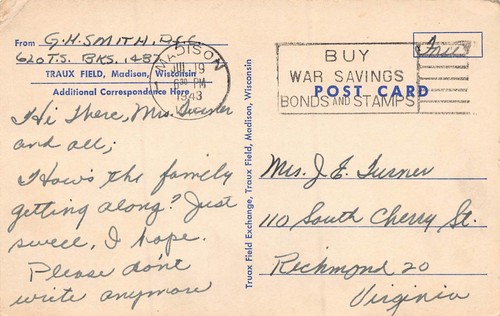 From G.H. SMITH, P.F.C.
620 T.S. BKS. 1487
TRAUX FIELD, Madison, Wisconsin
Additional Correspondence Here
Hi there, Mrs. Turner
and all;
How's the family
getting along? Just
swell, I hope.
Please don't
write anymore
MADISON
JUL 9
6:30 PM
1943
BUY
WAR SAVINGS
BONDS AND STAMPS
Free
POST CARD
Truax Field Exchange, Traux Field, Madison, Wisconsin
Mrs. J. E. Turner
110 South Cherry St.
Richmond 20
Virginia